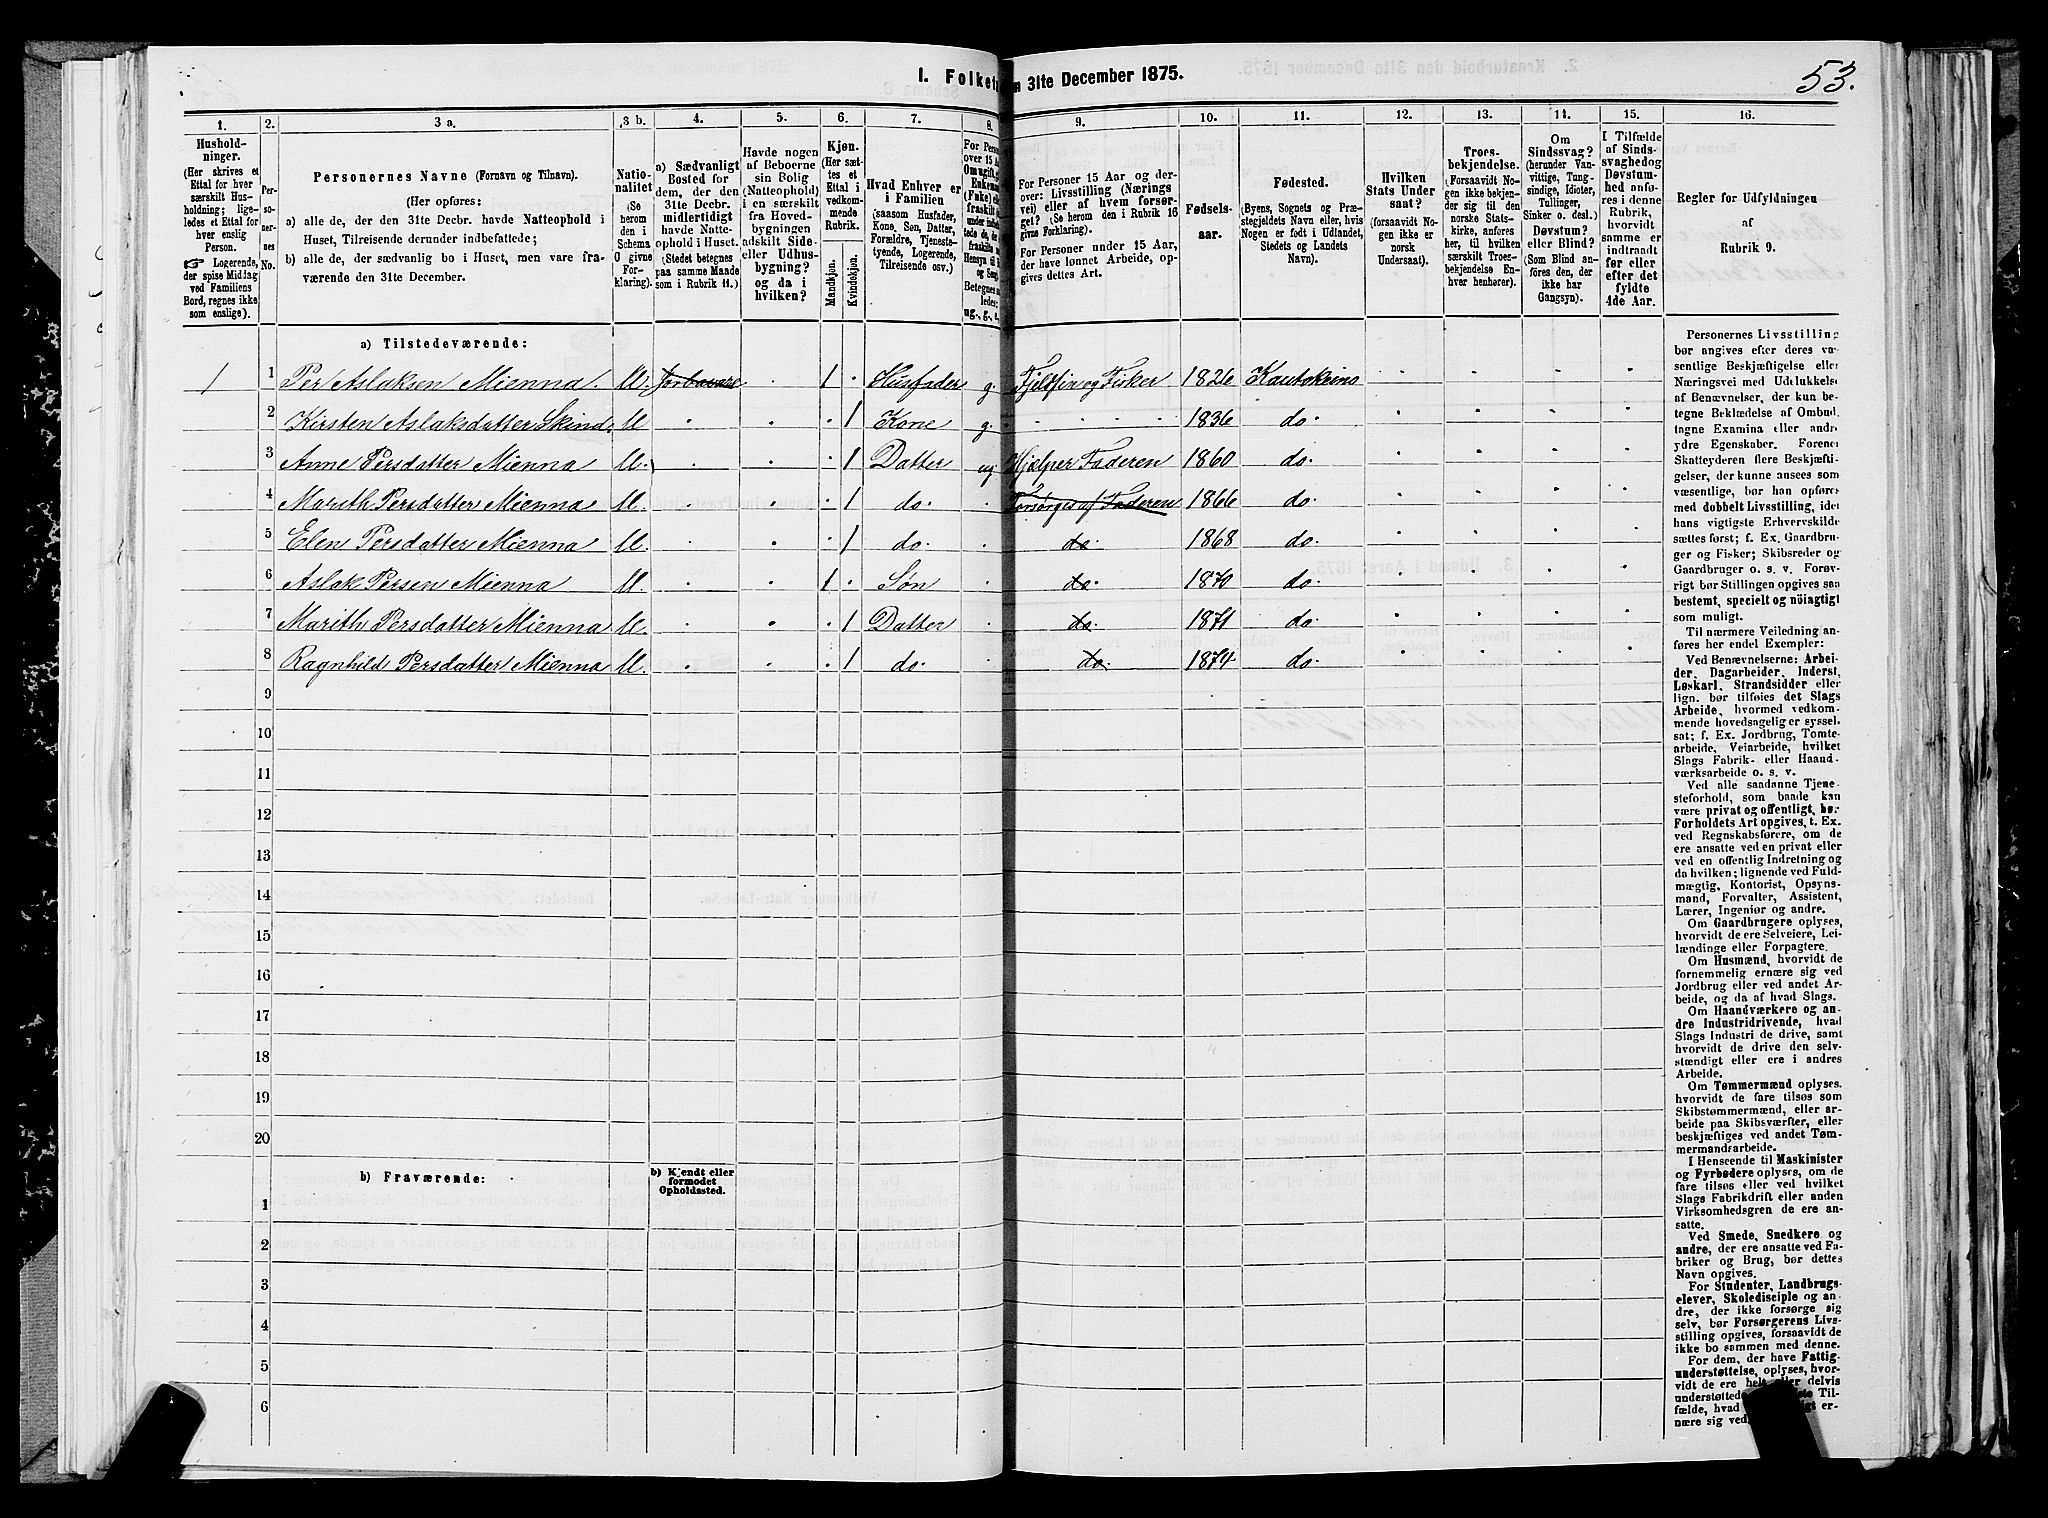 I. Folket
n 31te December 1875.
53.
1.
Hushold-
ninger.
(Her skrives et
Ettal for hver
særskilt Hus-
holdning; lige-
ledes et Ettal for
hver enslig
Person.
☞ Logerende,
der spise Middag
ved Familiens
Bord, regnes ikke
som enslige).
2.
Per-
so-
ner-
nes
No.
3 a.
Personernes Navne (Fornavn og Tilnavn).
(Her opføres:
a) alle de, der den 31te Decbr. havde Natteophold i
Huset, Tilreisende derunder indbefattede;
b) alle de, der sædvanlig bo i Huset, men vare fra-
værende den 31te December.
3 b.
Natio-
nalitet
(Se
herom
den i
Schema
O givne
For-
klaring).
4.
a) Sædvanligt
Bosted for
dem, der den
31te Decbr.
midlertidigt
havde Natte-
ophold i Huset.
(Stedet betegnes
paa samme Maade
som i Rubrik 11.)
5.
Havde nogen
af Beboerne
sin Bolig
(Natteophold)
i en særskilt
fra Hoved-
bygningen
adskilt Side-
eller Udhus-
bygning?
og da i
hvilken?
6.
Kjøn.
(Her sæt-
tes et
Ettal i
vedkom-
mende
Rubrik.
Mandkjøn.
Kvindekjøn.
7.
Hvad Enhver er
i Familien
(saasom Husfader,
Kone, Søn, Datter,
Forældre, Tjeneste-
tyende, Logerende,
Tilreisende osv.)
8.
For Person
over 15 Aa
Om ugift, gi
Enkeman
(Enke) ell
fraskilt s
under indbe
tede de, de
fraskilte
Hensyn til
og Sen
Betegnes s
ledes:
ug., g., e.,
9.
For Personer 15 Aar og der-
over: Livsstilling (Nærings
vei) eller af hvem forsør-
get? (Se herom den i Rubrik 16
givne Forklaring).
For Personer under 15 Aar,
der have lønnet Arbeide, op-
gives dettes Art.
10.
Fødsels-
aar.
11.
Fødested.
(Byens, Sognets og Præ-
stegjeldets Navn eller, hvis
Nogen er født i Udlandet,
Stedets og Landets
Navn).
12.
Hvilken
Stats Under
saat?
(forsaavidt No-
gen ikke er
norsk
Undersaat).
13.
Troes-
bekjendelse.
(Forsaavidt No-
gen ikke bekjen-
der sig til den
norske Stats-
kirke, anføres
her, til hvilken
særskilt Troes-
bekjendelse En-
hver henhører).
14.
Om
Sindssvag?
(herunder Van-
vittige, Tung-
sindige, Idioter,
Tullinger,
Sinker o. desl.)
Døvstum?
eller Blind?
(Som Blind an-
føres den, der
ikke har
Gangsyn).
15.
I Tilfælde
af Sinds-
svaghed og
Døvstum-
hed anfø-
res i denne
Rubrik,
hvorvidt
samme er
indtraadt
før eller
efter det
fyldte
4de Aar.
16.
Regler for Udfyldningen
af
Rubrik 9.
a) Tilstedeværende:
1 1 Per Aslaksen Mienna. M. 1 Husfader g. Fjeldfin og Fisker 1826 Kautokeino
2 Kirsten Aslaksdatter Skind. M 1 Kone g. 1836 do.
3 Anne Persdatter Mienna M. 1 Datter ug Hjælper Faderen 1860 do.
4 Marith Persdatter Mienna M. 1 do. Forsørges af Faderen 1866 do.
5 Elen Persdatter Mienna M. 1 do. do. 1868 do.
6 Aslak Persen Mienna M. 1 Søn do. 1870 do.
7 Marith Persdatter Mienna M. 1 Datter do. 1871 do.
8 Ragnhild Persdatter Mienna M. 1 do. do. 1874 do.
9
10
11
12
13
14
15
16
17
18
19
20
b) Fraværende:
b) Kjendt eller
formodet
Opholdssted.
1
2
3
4
5
6
Personernes Livsstilling
bør angives efter deres væ-
sentlige Beskjæftigelse eller
Næringsvei med Udelukkelse
af Benævnelser, der kun be-
tegne Beklædelse af Ombud,
tagne Examina eller andre
ydre Egenskaber. Forener
Skatteyderen flere Beskjæfti-
gelser, der kunne ansees som
væsentlige, bør han opføres
med dobbelt Livsstilling, idet
hans vigtigste Erhvervskilde
sættes først; f. Ex. Gaardbru-
ger og Fisker; Skibsreder og
Gaardbruger o. s. v. Forøv-
rigt bør Stillingen opgives saa
bestemt, specielt og nöiagtigt
som muligt.
Til nærmere Veiledning an-
føres her endel Exempler:
Ved Benævnelserne: Arbei-
der, Dagarbeider, Inderst,
Løskarl, Strandsidder eller
lign. bør tilføies det Slags
Arbeide, hvormed vedkom-
mende hovedsagelig er syssel-
sat; f. Ex. Jordbrug, Tomte-
arbeide, Veiarbeide, hvilket
Slags Fabrik- eller Haand-
værksarbeide o. s. v.
Ved alle saadanne Tjene-
steforhold, som baade kan
være privat og offentligt, bør
Forholdets Art opgives, t. Ex.
ved Regnskabsførere, om de
ere ansatte ved en privat eller
ved en offentlig Indretning og
da hvilken; lignende ved Fuld-
mægtig, Kontorist, Opsyns-
mand, Forvalter, Assistent,
Lærer, Ingeniør og andre.
Om Gaardbrugere oplyses,
hvorvidt de ere Selveiere, Lei-
lændinge eller Forpagtere.
Om Husmænd, hvorvidt de
fornemmelig ernære sig ved
Jordbrug eller ved andet Ar-
beide, og da af hvad Slags.
Om Haandværkere og an-
dre Industridrivende, hvad
Slags Industri de drive, samt
hvorvidt de drive den selv-
stændigt eller ere i andres
Arbeide.
Om Tømmermænd oplyses.
hvorvidt de fare tilsøs som
Skibstømmermænd, eller ar-
beide paa Skibsværfter, eller
beskjæftiges ved andet Tøm-
mermandsarbeide.
I Henseende til Maskinister
og Fyrbødere oplyses, om de
fare tilsøs eller ved hvilket
Slags Fabrikdrift eller anden
Virksomhedsgren de ere an-
satte.
Ved Smede, Snedkere og
andre, der ere ansatte ved Fa-
briker og Brug, bør dettes
Navn opgives.
For Studenter, Landbrugs-
elever, Skoledisciple og an-
dre, der ikke forsørge sig
selv, bør Forsørgerens Livs-
stilling opgives, forsaavidt de
ikke bo sammen med denne.
For dem, der have Fattig-
understøttelse, oplyses, hvor-
vidt de ere helt eller delvis
understøttede
Til-
fælde, hvad
er-
nære sig ved.